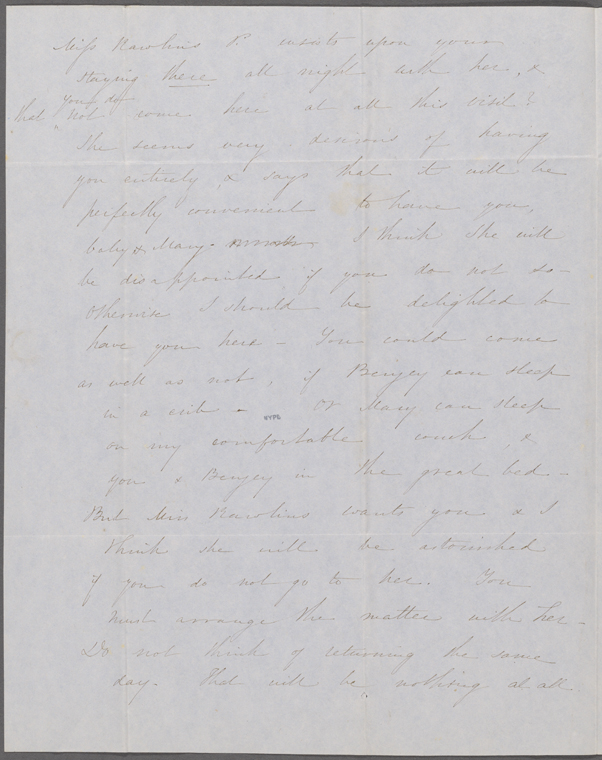 Miss Rawlins P. insists upon your
staying there all night with her, &
that you do not come here at all this visit!
She seems very desirous of having
you entirely, & says that it will be
perfectly convenient to have you,
baby & Mary. I think she will
be disappointed if you do not so –
Otherwise I should be delighted to
have you here – You could come
as well as not, if Benjey can sleep
in a crib – Or Mary can sleep
on my comfortable couch, &
you & Benjey in the great bed –
But Miss Rawlins wants you & I
think she will be astonished
if you do not go to her. You
must arrange the matter with her –
Do not think of returning the same
day. That will be nothing at all.